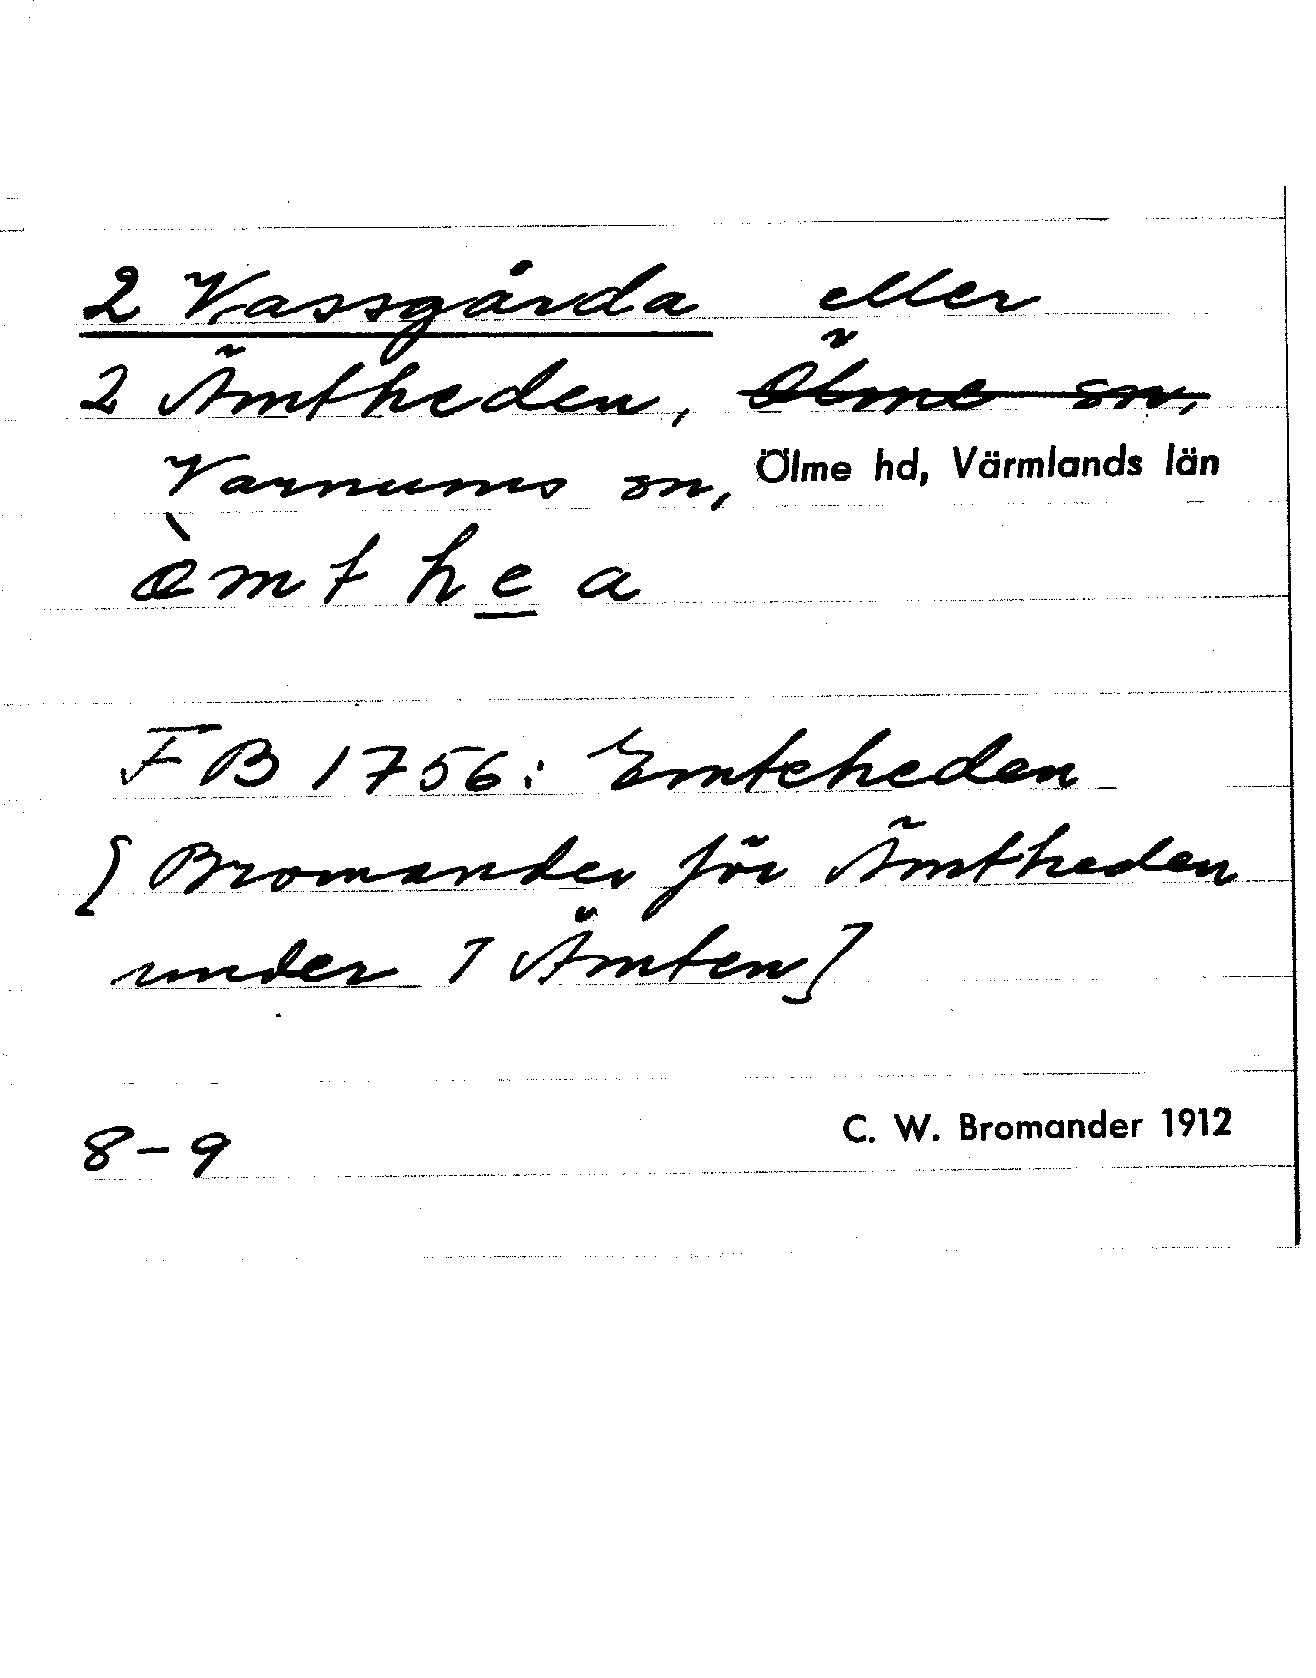 2 Vassgårda eller
2 Ämtheden, Ölme sn,
Varnums sn, Ölme hd, Värmlands län
ὲmt hea
FB 1756: Emteheden
[Bromander för Ämtheden
under 1 Ämten]
8-9 C. W. Bromander 1912